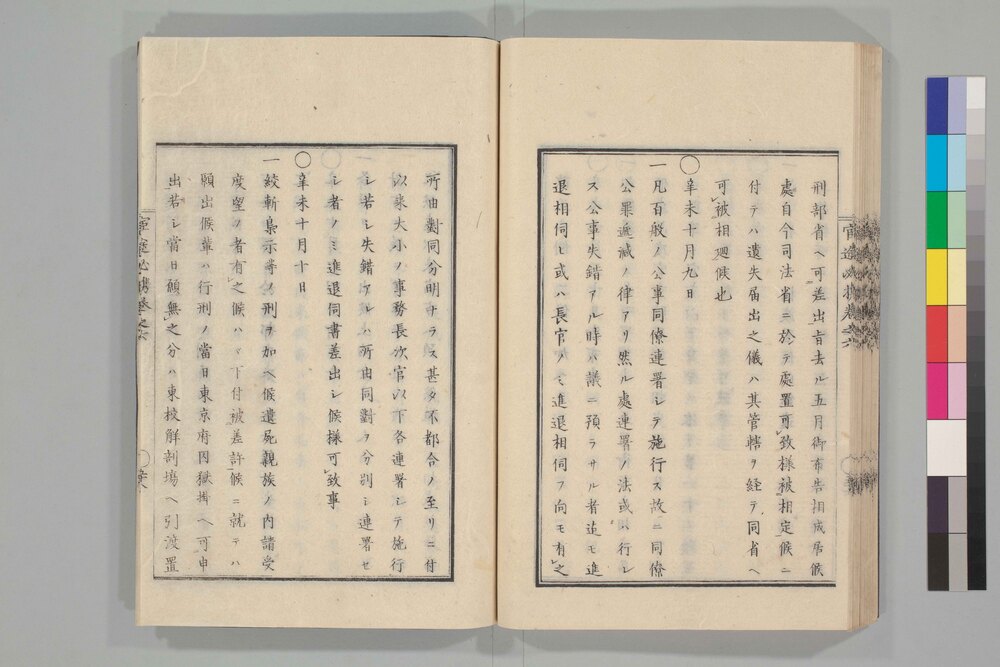 刑部省ヘ可差出旨去ル五月御布告相成居候
處自今司法省ニ於テ處置可致樣被相定候ニ
付テハ遺失届出之儀ハ其管轄ヲ経テ同省ヘ
可被相廻候也
○辛未十月九日
一凡百般ノ公事同僚連署シテ施行ス故ニ同僚
公罪遞減ノ律アリ然ル處連署ノ法或ハ行レ
ス公事失錯アル時ハ議ニ預ラサル者迄モ進
退相伺ヒ或ハ長官ノミ進退相伺フ向モ有之
所由對同分明ナラス甚タ不都合ノ至リニ付
以来大小ノ事務長次官以下各連署シテ施行
シ若シ失錯アルハ所由同對ヲ分別シ連署セ
シ者ノミ進退伺書差出シ候樣可致事
○辛未十月十日
一絞斬梟示等ノ刑ヲ加ヘ候遺屍親族ノ内請受
度望ノ者有之候ハヾ下付被差許候ニ就テハ
願出候輩ハ行刑ノ當日東京府囚獄掛ヘ可申
出若シ當日願無之分ハ東校解剖場ヘ引渡置